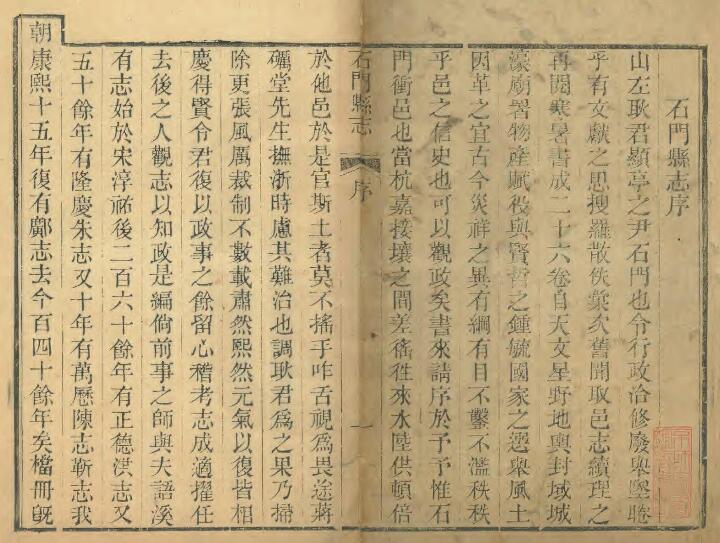 石門縣志序
山左耿君顯亭之尹石門也令行政洽修廢舉墜睠
乎有文獻之思搜羅散佚彙次舊聞取邑志續理之
再閱寒暑書成二十六卷自天文星野地輿封域城
濠廟署物產賦役與賢哲之鍾毓國家之選舉風土
因革之宜古今災祥之異有綱有目不鑿不濫秩秩
乎邑之信史也可以觀政矣書來請序於予予惟石
門衝邑也當杭嘉接壤之間差徭徃來水陸供頓倍
石門縣志 序 一
於他邑於是官斯土者莫不搖手咋舌視爲畏途蔣
礪堂先生撫浙時慮其難治也調耿君爲之果乃掃
除更張風厲裁制不數載肅然熙然元氣以復皆相
慶得賢令君復以政事之餘留心稽考志成適擢任
去後之人觀志以知政是編倘前事之師與夫語溪
有志始於宋淳祐後二百六十餘年有正德洪志又
五十餘年有隆慶朱志又十年有萬曆陳志靳志我
朝康熙十五年復有鄺志去今百四十餘年矣檔冊旣